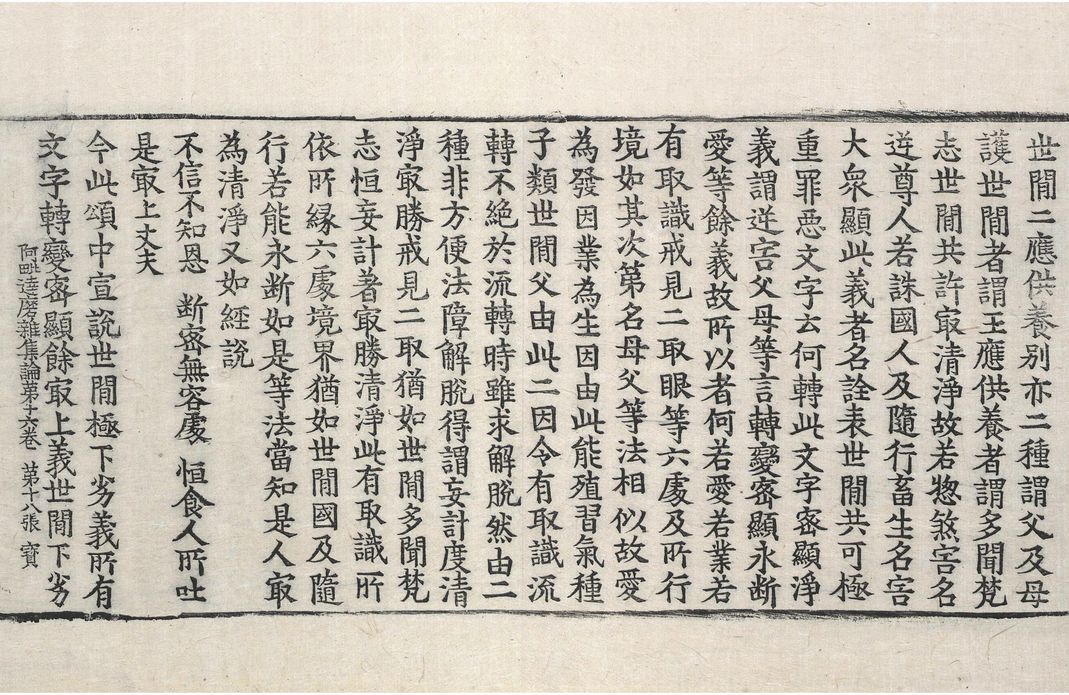 世間二應供養別亦二種謂父及母
護世間者謂王應供養者謂多聞梵
志世間共許㝡清淨故若惣煞害名
逆尊人若誅國人及隨行畜生名害
大衆顯此義者名詮表世間共可極
重罪惡文字云何轉此文字密顯淨
義謂逆害父母等言轉變密顯永斷
愛等餘義故所以者何若愛若業若
有取識戒見二取眼等六處及所行
境如其次第名母父等法相似故愛
為發因業為生因由此能殖習氣種
子類世間父由此二因令有取識流
轉不絕於流轉時雖求解脫然由二
種非方便法障解脫得謂妄計度清
淨㝡勝戒見二取猶如世間多聞梵
志恒妄計著㝡勝清淨此有取識所
依所緣六處境界猶如世間國及隨
行若能永斷如是等法當知是人㝡
為清淨又如經說
不信不知恩 断密無容處 恒食人所吐
是㝡上丈夫
今此頌中宣說世間極下劣義所有
文字轉變密顯餘㝡上義世間下劣
阿毗達磨雜集論第十六卷 第十八張 寳